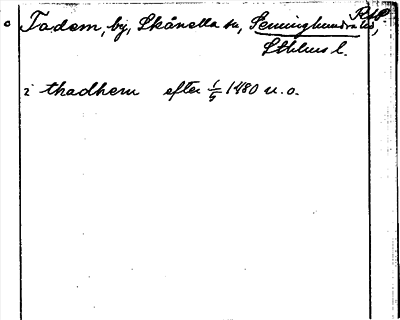 Tadem, by, Skånella sn, Seminghundra hd,
Sthlms l.
i thadhem efter 1/5 1480 u.o.